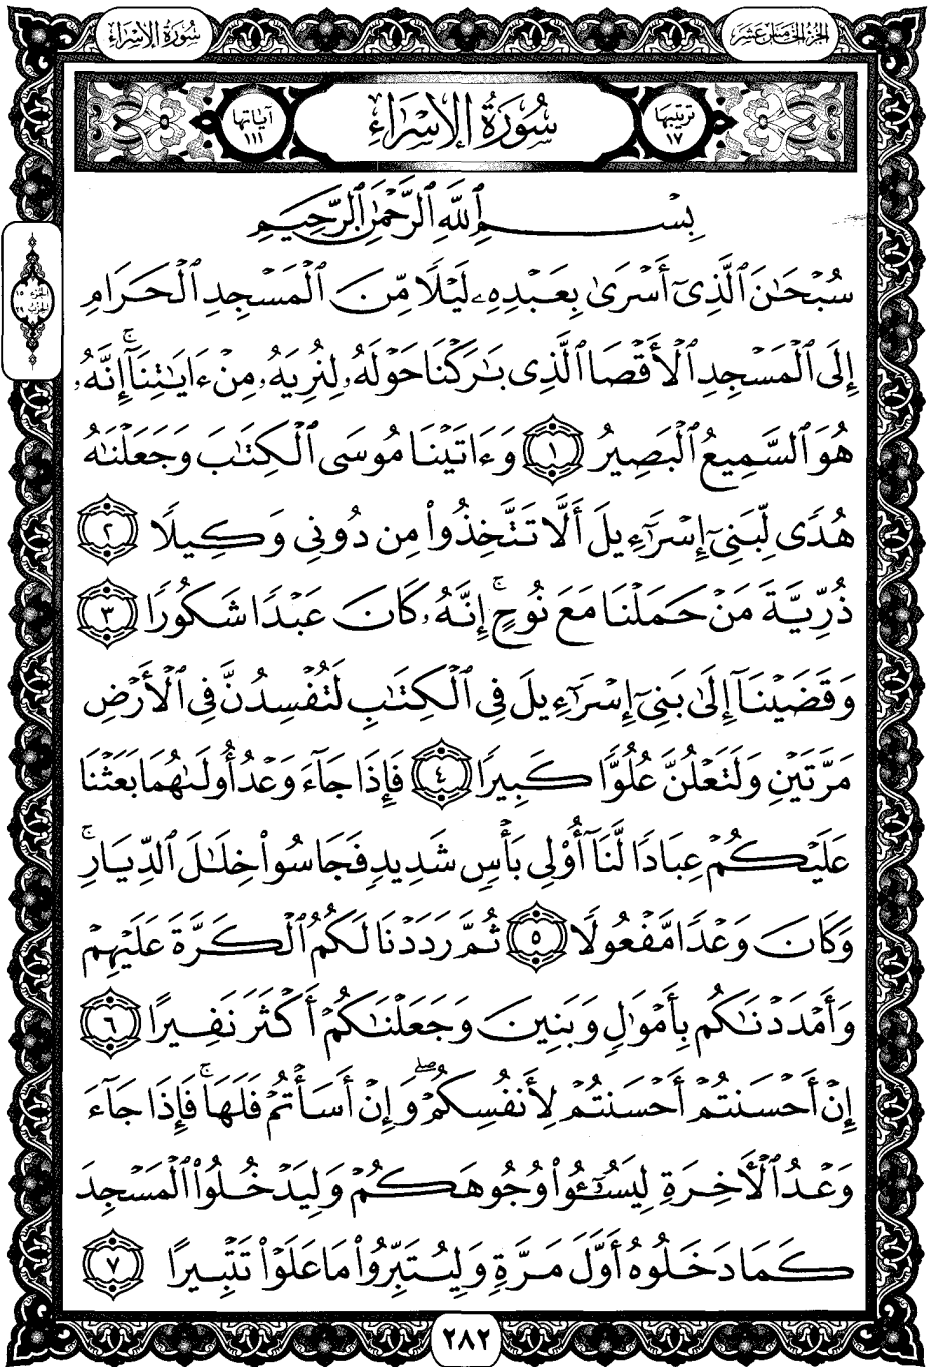 الجزء الخامس عشر
سُورَةُ الإِسْرَاءِ
ترتيبها ١٧
سُورَةُ الإِسْرَاءِ
آياتها ١١١
بِسْمِ ٱللَّهِ ٱلرَّحْمَٰنِ ٱلرَّحِيمِ
سُبْحَٰنَ ٱلَّذِىٓ أَسْرَىٰ بِعَبْدِهِۦ لَيْلًا مِّنَ ٱلْمَسْجِدِ ٱلْحَرَامِ
إِلَى ٱلْمَسْجِدِ ٱلْأَقْصَا ٱلَّذِى بَٰرَكْنَا حَوْلَهُۥ لِنُرِيَهُۥ مِنْ ءَايَٰتِنَآ ۚ إِنَّهُۥ
هُوَ ٱلسَّمِيعُ ٱلْبَصِيرُ ١ وَءَاتَيْنَا مُوسَى ٱلْكِتَٰبَ وَجَعَلْنَٰهُ
هُدًى لِّبَنِىٓ إِسْرَٰٓءِيلَ أَلَّا تَتَّخِذُوا۟ مِن دُونِى وَكِيلًا ٢
ذُرِّيَّةَ مَنْ حَمَلْنَا مَعَ نُوحٍ ۚ إِنَّهُۥ كَانَ عَبْدًا شَكُورًا ٣
وَقَضَيْنَآ إِلَىٰ بَنِىٓ إِسْرَٰٓءِيلَ فِى ٱلْكِتَٰبِ لَتُفْسِدُنَّ فِى ٱلْأَرْضِ
مَرَّتَيْنِ وَلَتَعْلُنَّ عُلُوًّا كَبِيرًا ٤ فَإِذَا جَآءَ وَعْدُ أُولَىٰهُمَا بَعَثْنَا
عَلَيْكُمْ عِبَادًا لَّنَآ أُو۟لِى بَأْسٍ شَدِيدٍ فَجَاسُوا۟ خِلَٰلَ ٱلدِّيَارِ ۚ
وَكَانَ وَعْدًا مَّفْعُولًا ٥ ثُمَّ رَدَدْنَا لَكُمُ ٱلْكَرَّةَ عَلَيْهِمْ
وَأَمْدَدْنَٰكُم بِأَمْوَٰلٍ وَبَنِينَ وَجَعَلْنَٰكُمْ أَكْثَرَ نَفِيرًا ٦
إِنْ أَحْسَنتُمْ أَحْسَنتُمْ لِأَنفُسِكُمْ ۖ وَإِنْ أَسَأْتُمْ فَلَهَا ۚ فَإِذَا جَآءَ
وَعْدُ ٱلْأَخِرَةِ لِيَسُۥٓـُٔوا۟ وُجُوهَكُمْ وَلِيَدْخُلُوا۟ ٱلْمَسْجِدَ
كَمَا دَخَلُوهُ أَوَّلَ مَرَّةٍ وَلِيُتَبِّرُوا۟ مَا عَلَوْا۟ تَتْبِيرًا ٧
٢٨٢